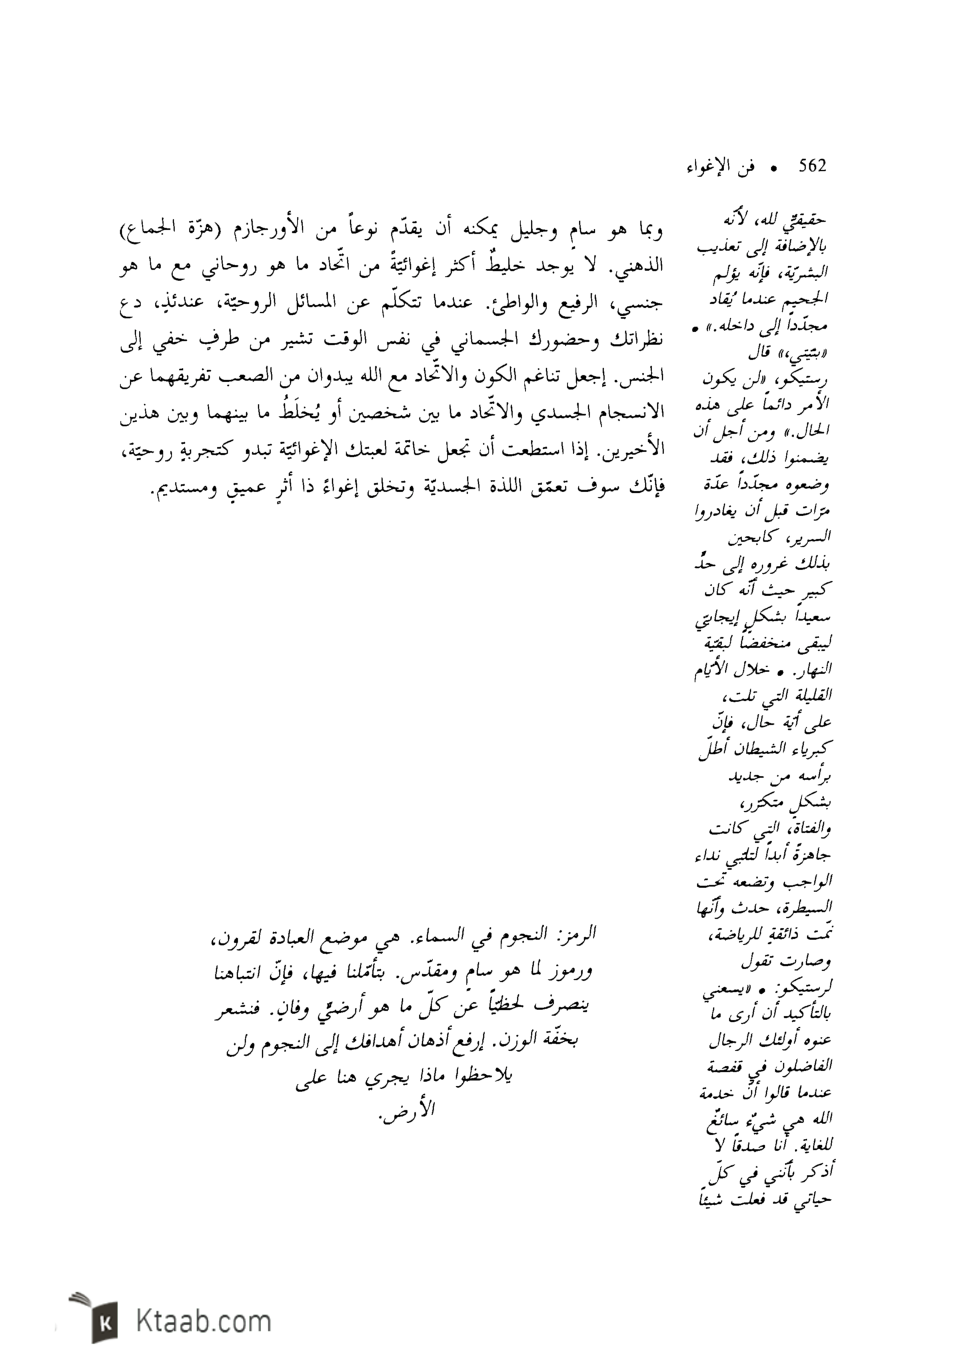 562 • فن الإغواء
وبما هو سامٍ وجليل يمكنه أن يقدّم نوعاً من الأورجازم (هزّة الجماع)
الذهني. لا يوجد خليطٌ أكثر إغوائيّةً من اتّحاد ما هو روحاني مع ما هو
جنسي، الرفيع والواطئ. عندما تتكلّم عن المسائل الروحيّة، عندئذٍ، دع
نظراتك وحضورك الجسماني في نفس الوقت تشير من طرفٍ خفي إلى
الجنس. إجعل تناغم الكون والاتّحاد مع الله يبدوان من الصعب تفريقهما عن
الانسجام الجسدي والاتّحاد ما بين شخصين أو يُخلَطُ ما بينهما وبين هذين
الأخيرين. إذا استطعت أن تجعل خاتمة لعبتك الإغوائيّة تبدو كتجربةٍ روحيّة،
فإنّك سوف تعمّق اللذة الجسديّة وتخلق إغواءً ذا أثرٍ عميقٍ ومستديم.
حقيقيٌّ لله، لأنّه
بالإضافة إلى تعذيب
البشريّة، فإنّه يؤلم
الجحيم عندما يُقاد
مجدّداً إلى داخله.» •
«بنيّتي،» قال
رستيكو، «لن يكون
الأمر دائماً على هذه
الحال.» ومن أجل أن
يضمنوا ذلك، فقد
وضعوه مجدّداً عدّة
مرّات قبل أن يغادروا
السرير، كابحين
بذلك غروره إلى حدٍّ
كبير حيث أنّه كان
سعيداً بشكلٍ إيجابيّ
ليبقى منخفضاً لبقيّة
النهار. • خلال الأيّام
القليلة التي تلت،
على أيّة حال، فإنّ
كبرياء الشيطان أطلّ
برأسه من جديد
بشكلٍ متكرّر،
والفتاة، التي كانت
جاهزةً أبداً لتلبّي نداء
الواجب وتضعه تحت
السيطرة، حدث وأنّها
نمّت ذائقةٍ للرياضة،
وصارت تقول
لرستيكو: • «يسعني
بالتأكيد أن أرى ما
عنوه أولئك الرجال
الفاضلون في قفصة
عندما قالوا أنّ خدمة
الله هي شيءٌ سائغٌ
للغاية. أنا صدقاً لا
أذكر بأنّني في كلّ
حياتي قد فعلت شيئاً
الرمز: النجوم في السماء. هي موضع العبادة لقرون،
ورموز لما هو سامٍ ومقدّس. بتأمّلنا فيها، فإنّ انتباهنا
ينصرف لحظيّاً عن كلّ ما هو أرضيٌّ وفانٍ. فنشعر
بخفّة الوزن. إرفع أذهان أهدافك إلى النجوم ولن
يلاحظوا ماذا يجري هنا على
الأرض.
Ktaab.com